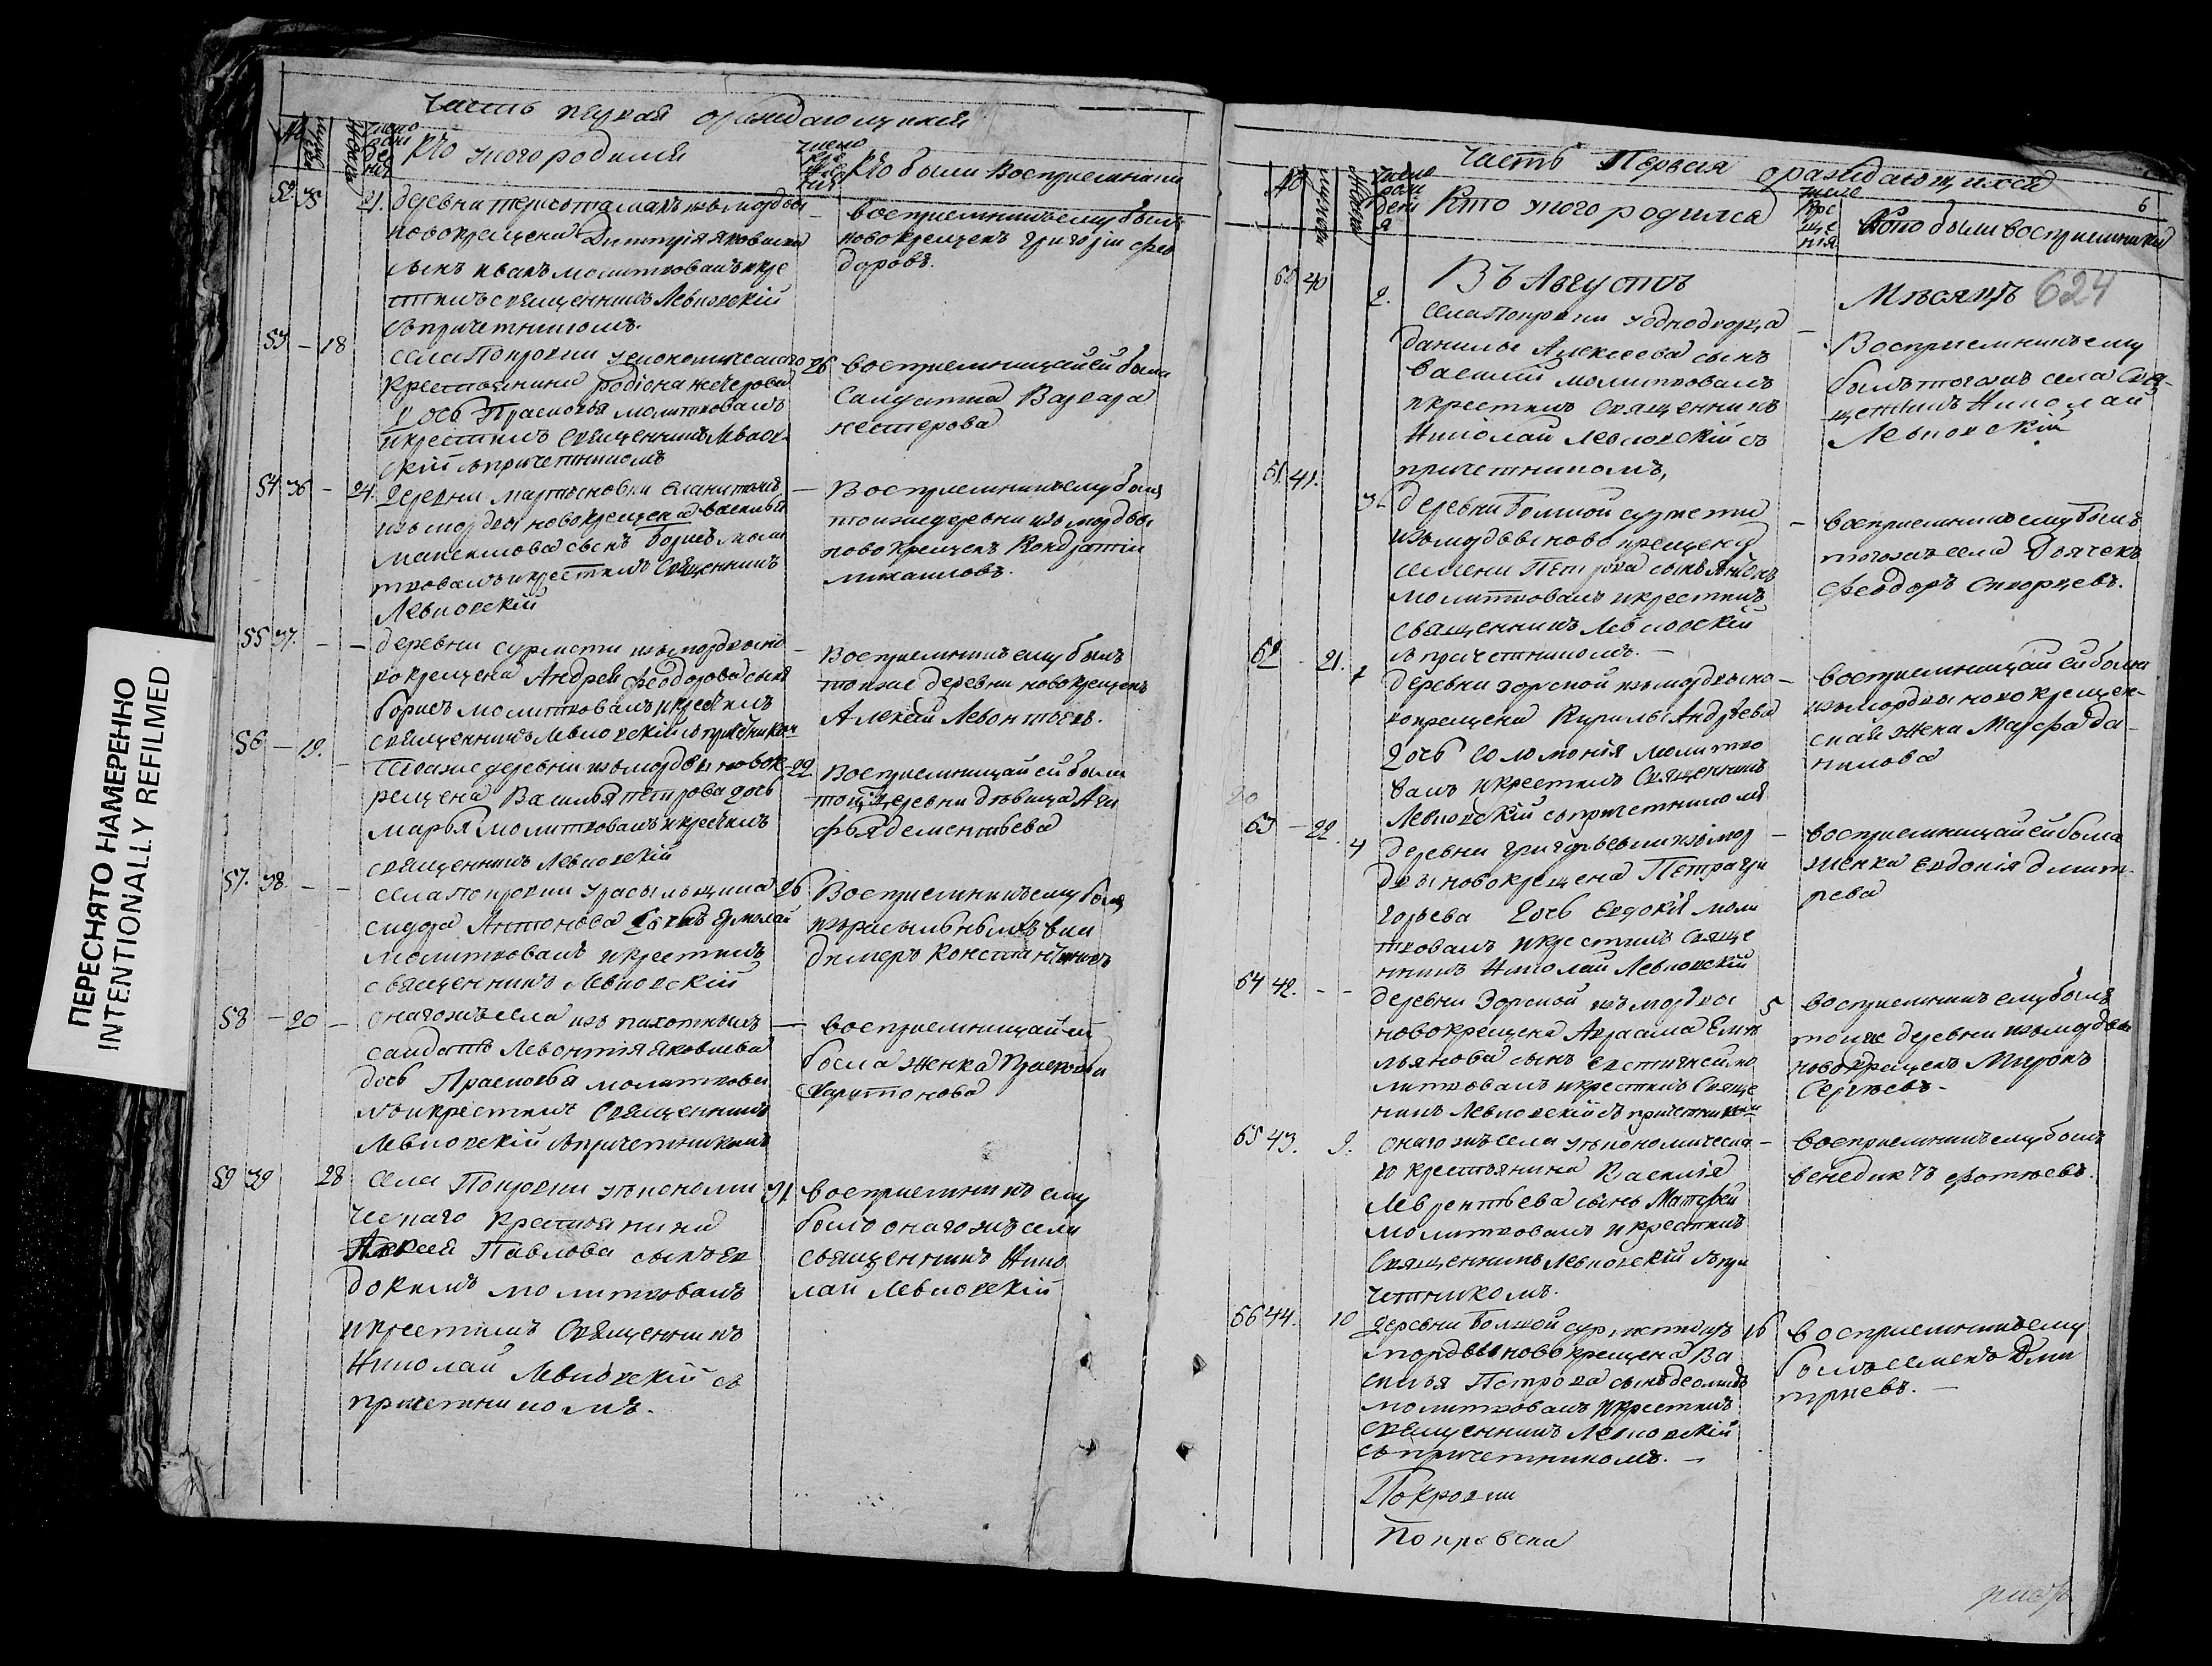 ПЕРЕСНЯТО НАМЕРЕННО
INTENTIONALLY REFILMED
часть первая ораждающихся
№
число рожде ния
Кто укого родился
число кре ще ния
Кто были Восприемники
52 35 21.
деревни из мордвы
новокрещена Димитрія Яковлева
сынъ Иванъ молитвовалъ и кре
стилъ священникъ Левковскій
съпричетникомъ.
восприемникъ ему былъ
новокрещенъ Григорій Фео
доровъ.
53 – 18
села Покровки экономическаго
крестьянина Родіона
дочь Прасковья молитвовалъ
и крестилъ священникъ Левков
скій съпричетникомъ
26
восприемницай ей была
салдатка Варвара
нестерова
54 36 – 24.
деревни
изъ мордвы новокрещена Василья
максимова сынъ борисъ моли
твовалъ и крестилъ священникъ
Левковскій
Восприемникъ ему былъ
тоижедеревни изъ мордвы
новокрещенъ Кондратіи
михаиловъ.
55 37. – –
деревни сурмети изъ мордвы но
вокрещена Андрея Феодорова сынъ
борисъ молитвовалъ и крестилъ
священникъ Левковскій съпричетником
Восприемникъ ему былъ
тоиже деревни новокрещенъ
Алексей Левонтьевъ.
56 – 19.
Тоаже деревни изъ мордвы новок-
рещена Василья петрова дочь
марья молитвовалъ и крестилъ
священникъ Левковскій
22
Восприемницай ей была
тойже деревни девица Ага
фья дементьева
57. 38. – –
села Покровки
сидора Антонова сынъ Ермолай
молитвовалъ и крестилъ
священникъ Левковскій
26
Восприемникъ ему былъ
вла
димеръ константиновъ
58 – 20 –
онагожъ села изъ пахотныхъ
салдатъ Левонтія Яковлева
дочь Прасковья молитвова
лъ и крестилъ Священникъ
Левковскій съпричетникомъ
восприемницай ей
была женка Прасковья
Харитонова
59 39 28
села Покровки экономи
ческаго крестьянина
Павлова сынъ Ев
докимъ молитвовалъ
и крестилъ Священникъ
Николай Левковскій съ
причетникомъ.
31
восприемникъ ему
былъ онагожъ села
священникъ Нико
лай Левковскій
часть Первая ораждающихся
6
№
число рож дені я
Кто укого родился
число кре ще нія.
Кто были восприемники
Въ Августѣ
Мѣсяцѣ 624
60 40 2.
села Покровки уоднодворца
данилы Алексеева сынъ
василій молитвовалъ
и крестилъ Священникъ
Николай Левковскій съ
причетникомъ,
Восприемникъ ему
былъ тогожъ села Свя-
щенникъ Николай
Левковскій
61. 41. 3-
деревни Болшой сурмети
изъ мордвы новокрещена
семена Петрова сынъ
молитвовалъ и крестилъ
священникъ Левковскій
съпричетникомъ. –
восприемникъ ему былъ
тогожъ села Дьячекъ
Феодоръ Скворцевъ.
62 – 21.
деревни зорской изъ мордвы но-
вокрещена Кирилы Андрѣева
дочь соломонія молитво
валъ и крестилъ Священникъ
Левковскій съпричетникомъ
восприемницай ей была
изъ мордвы новокрещен-
ская жена Марфа да-
нилова
63 – 22. 4
деревни Григорьевки изъ мор
двы новокрещена Петра гри
горьева дочь Евдокія моли
твовалъ и крестилъ Свяще
нникъ Николай Левковскій
восприемницай ей была
женка Евдокія дмит-
рева
64 42. – –
деревни Зорской изъ мордвы
новокрещена Авраама Емѣ
льянова сынъ Евстигней мо
литвовалъ и крестилъ Свяще
никъ Левковскій съ причетником
5
восприемникъ ему былъ
тоиже деревни изъ мордвы
новокрещенъ Миронъ
Сергѣевъ.
65 43. 9.
онагожъ села экономическа
го крестьянина Василія
Лаврентьева сынъ Матфей
молитвовалъ и крестилъ
Священникъ Левковскій съпри
четникомъ.
восприемникъ ему былъ
венедиктъ Фотеевъ.
66 44. 10
деревни Болшой сурмети изъ
мордвы новокрещена Ва
силья Петрова сынъ
молитвовалъ и крестилъ
священникъ Левковскій
съпричетникомъ. –
16
восприемникъ ему
былъ семенъ Дми
триевъ. –
Покровки